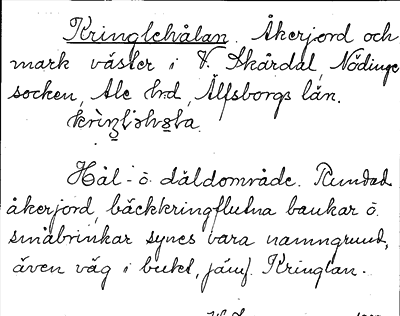 Kringlehålan. Åkerjord och
mark väster i V. Skårdal, Nödinge
socken, Ale hrd, Älfsborgs län.
Hål- o. däldområde. Rundad
åkerjord, bäckkringflutna backar o.
småbrinkar synes vara namngrund,
även väg i bukt, jämf. Kringlan.